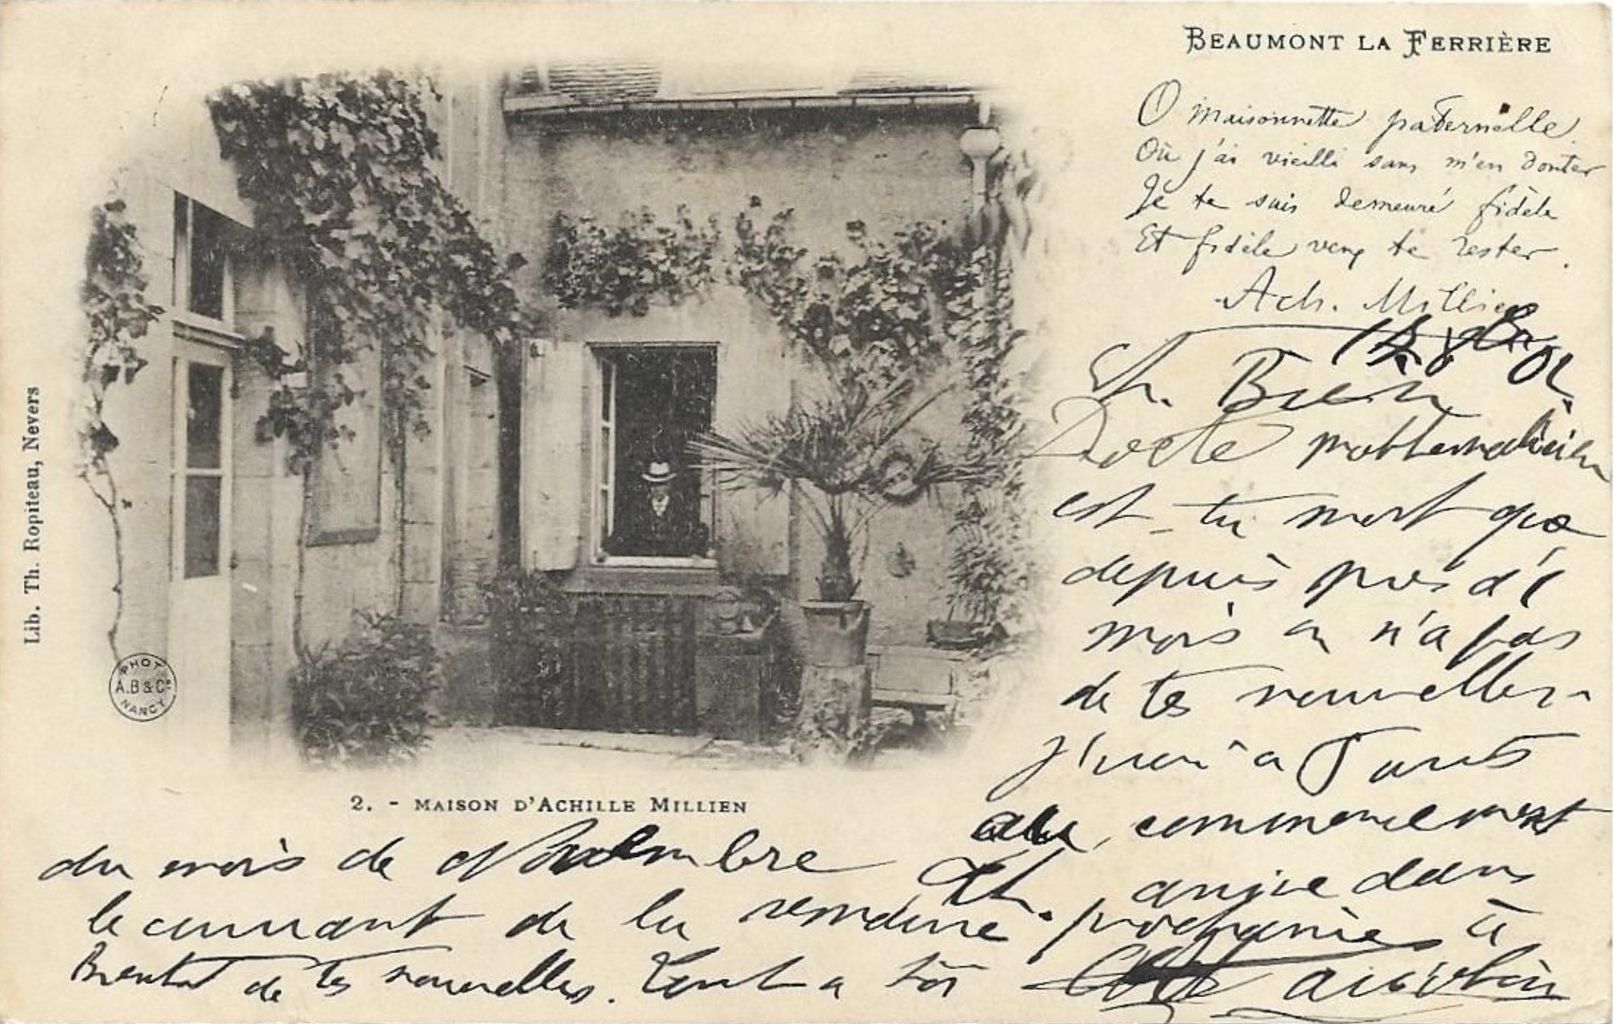 BEAUMONT LA FERRIÈRE
O maisonnette paternelle
Où j'ai vieilli sans m'en douter
Je te suis demeuré fidèle
Et fidèle veux te rester.
Ach. Millien
Ch. Bien
Docte
est-tu mort que
depuis près d'1
mois on n'a pas
de tes nouvelles
j'irai à Paris
au commencement
du mois de Novembre
Ch. arrive dans
le courant de la semaine prochaine à
Bientot de tes nouvelles. Tout a toi
Lib. Th. Ropiteau, Nevers
PHOT
A.B & Cie
NANCY
2. - MAISON D'ACHILLE MILLIEN